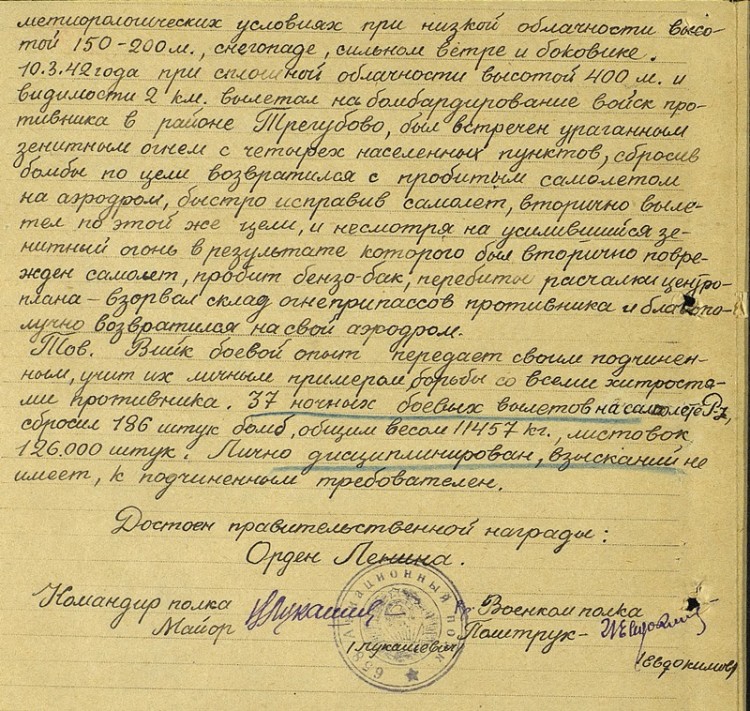 метиорологических условиях при низкой облачности высо-
той 150-200 м., снегопаде, сильном ветре и боковике.
10.3.42 года при сплошной облачности высотой 400 м. и
видимости 2 км. вылетал на бомбардирование войск про-
тивника в районе Трегубово, был встречен ураганным
зенитным огнем с четырех населенных пунктов, сбросив
бомбы по цели возвратился с пробитым самолетом
на аэродром, быстро исправив самолет, вторично выле-
тел по этой же цели, и несмотря на усилившийся зе-
нитный огонь в результате которого был вторично повре-
жден самолет, пробит бензо-бак, перебиты расчалки центро-
плана - взорвал склад огнеприпассов противника и благопо-
лучно возвратился на свой аэродром.
Тов. Вийк боевой опыт передает своим подчинен-
ным, учит их личным примером борьбы со всеми хитростя-
ми противника. 37 ночных боевых вылетов на самолете Р-5,
сбросил 186 штук бомб, общим весом 11457 кг., листовок
126.000 штук. Лично дисциплинирован, взысканий не
имеет, к подчиненным требователен.
Достоен правительственной награды:
Орден Ленина.
Командир полка
Майор
/Лукашевич/
Военком полка
Политрук -
/Евдокимов/
658 Авиационный полк